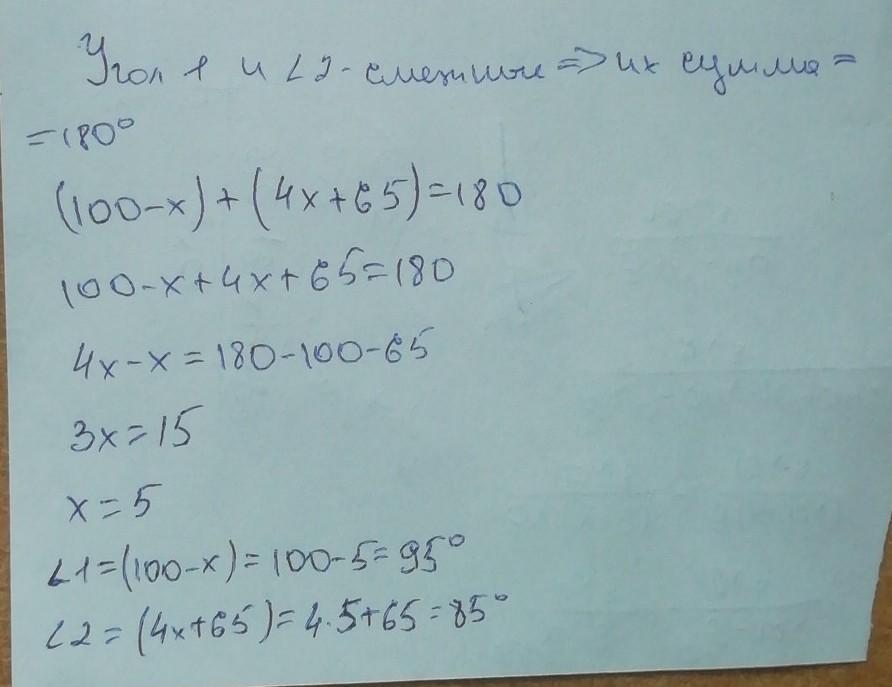 Угол 1 и ∠2 - смежные => их сумма =
= 180°
(100-x)+(4x+65)=180
100-x+4x+65=180
4x-x=180-100-65
3x=15
x=5
∠1=(100-x)=100-5=95°
∠2=(4x+65)=4·5+65=85°